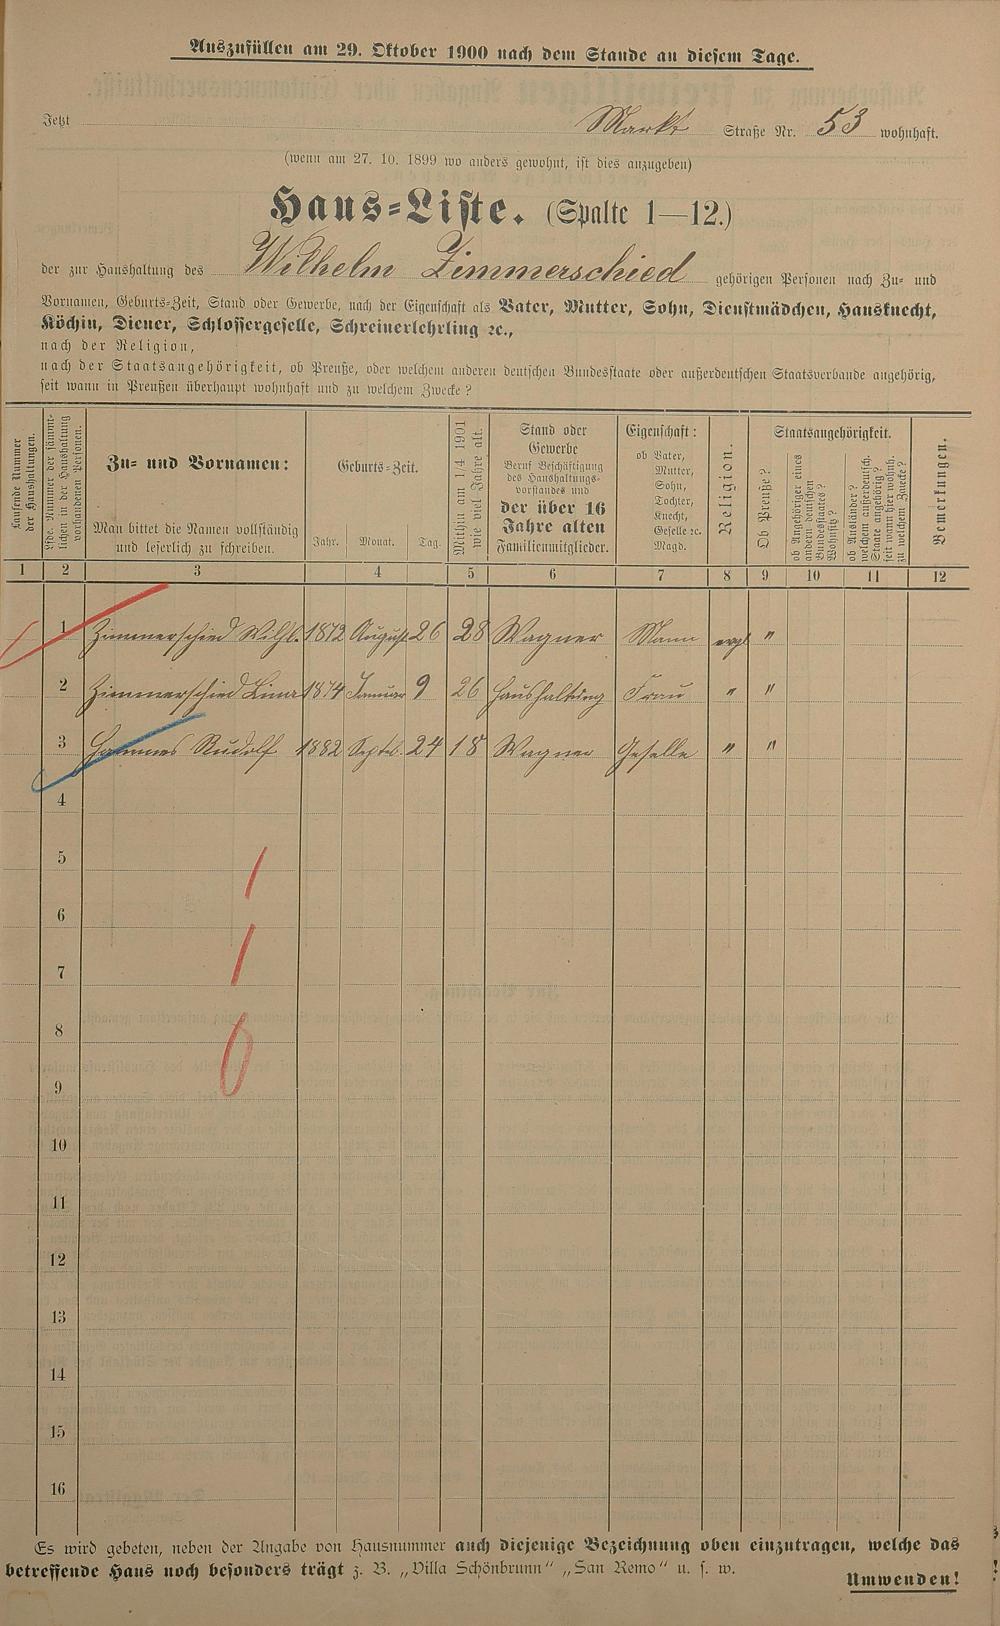 Auszufüllen am 29. Oktober 1900 nach dem Stande an diesem Tage.
Jetzt Markt Straße Nr. 53 wohnhaft.
(wenn am 27. 10. 1899 wo anders gewohnt, ist dies anzugeben)
Haus-Liste. (Spalte 1—12.)
der zur Haushaltung des Wilhelm Zimmerschied gehörigen Personen nach Zu- und
Vornamen, Geburts-Zeit, Stand oder Gewerbe, nach der Eigenschaft als Vater, Mutter, Sohn, Dienstmädchen, Hausknecht,
Köchin, Diener, Schlossergeselle, Schreinerlehrling ꝛc.,
nach der Religion,
nach der Staatsangehörigkeit, ob Preuße, oder welchem anderen deutschen Bundesstaate oder außerdeutschen Staatsverbande angehörig,
seit wann in Preußen überhaupt wohnhaft und zu welchem Zwecke?
Laufende Nummer
der Haushaltungen.
Lfde. Nummer der sämmt-
lichen in der Haushaltung
vorhandenen Personen.
Zu- und Vornamen:
Man bittet die Namen vollständig
und leserlich zu schreiben.
Geburts-Zeit.
Jahr. Monat. Tag.
Mithin am 1/4 1901
wie viel Jahre alt.
Stand oder
Gewerbe
Beruf Beschäftigung
des Haushaltungs-
vorstandes und
der über 16
Jahre alten
Familienmitglieder.
Eigenschaft:
ob Vater,
Mutter,
Sohn,
Tochter,
Knecht,
Geselle ꝛc.
Magd.
Religion.
Staatsangehörigkeit.
Ob Preuße?
ob Angehöriger eines
andern deutschen
Bundesstaates?
Wohnsitz?
ob Ausländer?
welchem außerdeutsch.
Staate angehörig?
seit wann hier wohnh.
zu welchem Zwecke?
Bemerkungen.
1 2 3 4 5 6 7 8 9 10 11 12
1 Zimmerschied Wilh. 1872 August 26 28 Wagner Mann evgl "
2 Zimmerschied Lina 1874 Januar 9 26 Haushaltung Frau " "
3 Rudolf 1882 Septb. 24 18 Wagner Geselle " "
4
5
6
7
8
9
10
11
12
13
14
15
16
Es wird gebeten, neben der Angabe von Hausnummer auch diejenige Bezeichnung oben einzutragen, welche das
betreffende Haus noch besonders trägt z. B. „Villa Schönbrunn" „San Remo" u. s. w.
Umwenden!